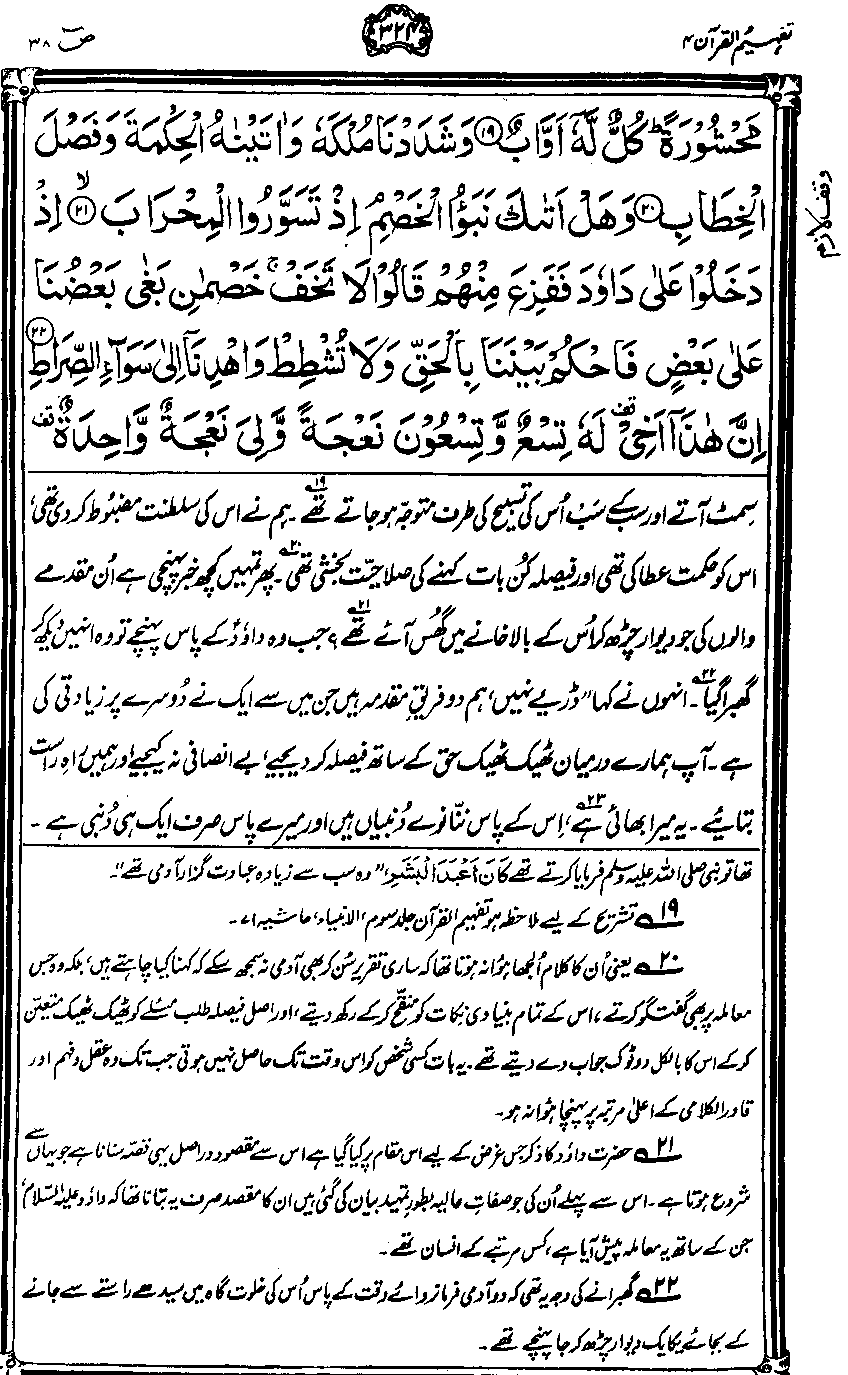 تفہیم القرآن ۴
۳۲۴
صٓ ۳۸
مَحْشُوْرَةً ؕ كُلٌّ لَّهٗۤ اَوَّابٌ ﴿۱۹﴾ وَشَدَدْنَا مُلْكَهٗ وَاٰتَيْنٰهُ الْحِكْمَةَ وَفَصْلَ
الْخِطَابِ ﴿۲۰﴾ وَهَلْ اَتٰىكَ نَبَؤُا الْخَصْمِ اِذْ تَسَوَّرُوا الْمِحْرَابَ ﴿۲۱﴾ۙ اِذْ
وقف لازم
دَخَلُوْا عَلٰى دَاوٗدَ فَفَزِعَ مِنْهُمْ قَالُوْا لَا تَخَفْ ۚ خَصْمٰنِ بَغٰى بَعْضُنَا
عَلٰى بَعْضٍ فَاحْكُمْ بَيْنَنَا بِالْحَقِّ وَلَا تُشْطِطْ وَاهْدِنَاۤ اِلٰى سَوَآءِ الصِّرَاطِ ﴿۲۲﴾
اِنَّ هٰذَاۤ اَخِيْ قف لَهٗ تِسْعٌ وَّتِسْعُوْنَ نَعْجَةً وَّلِيَ نَعْجَةٌ وَّاحِدَةٌ قف
سمٹ آتے اور سب کے سب اُس کی تسبیح کی طرف متوجّہ ہو جاتے تھے۱۹۔ ہم نے اس کی سلطنت مضبوط کر دی تھی،
اس کو حکمت عطا کی تھی اور فیصلہ کُن بات کہنے کی صلاحیّت بخشی تھی۲۰۔ پھر تمہیں کچھ خبر پہنچی ہے اُن مقدمے
والوں کی جو دیوار چڑھ کر اُس کے بالا خانے میں گھُس آئے تھے۲۱؟ جب وہ داؤدؑ کے پاس پہنچے تو وہ انہیں دیکھ کر
گھبرا گیا۲۲۔ انہوں نے کہا ”ڈریے نہیں، ہم دو فریقِ مقدمہ ہیں جن میں سے ایک نے دُوسرے پر زیادتی کی
ہے۔ آپ ہمارے درمیان ٹھیک ٹھیک حق کے ساتھ فیصلہ کر دیجیے، بے انصافی نہ کیجیے اور ہمیں راہِ راست
بتائیے۔ یہ میرا بھائی ہے۲۳، اِس کے پاس ننّانوے دُنبیاں ہیں اور میرے پاس صرف ایک ہی دُنبی ہے۔
تھا تو نبی صلی اللہ علیہ وسلم فرمایا کرتے تھے كَانَ اَعْبَدَ الْبَشَرِ، ”وہ سب سے زیادہ عبادت گزار آدمی تھے“۔
۱۹ تشریح کے لیے ملاحظہ ہو تفہیم القرآن جلد سوم، الانبیاء، حاشیہ ۷۱۔
۲۰ یعنی اُن کا کلام اُلجھا ہوا نہ ہوتا تھا کہ ساری تقریر سُن کر بھی آدمی نہ سمجھ سکے کہ کہنا کیا چاہتے ہیں، بلکہ وہ جس
معاملہ پر بھی گفتگو کرتے، اس کے تمام بنیادی نکات کو منقّح کرکے رکھ دیتے، اور اصل فیصلہ طلب مسئلے کو ٹھیک ٹھیک متعیّن
کرکے اس کا بالکل دو ٹوک جواب دے دیتے تھے۔ یہ بات کسی شخص کو اس وقت تک حاصل نہیں ہوتی جب تک وہ عقل و فہم اور
قادر الکلامی کے اعلیٰ مرتبہ پر پہنچا ہُوا نہ ہو۔
۲۱ حضرت داؤد کا ذکر جس غرض کے لیے اس مقام پر کیا گیا ہے اس سے مقصود دراصل یہی قصّہ سنانا ہے جو یہاں سے
شروع ہوتا ہے۔ اس سے پہلے اُن کی جو صفاتِ عالیہ بطورِ تمہید بیان کی گئی ہیں ان کا مقصد صرف یہ بتانا تھا کہ داؤد علیہ السلام،
جن کے ساتھ یہ معاملہ پیش آیا ہے، کس مرتبے کے انسان تھے۔
۲۲ گھبرانے کی وجہ یہ تھی کہ دو آدمی فرمانروائے وقت کے پاس اُس کی خلوت گاہ میں سیدھے راستے سے جانے
کے بجائے یکایک دیوار چڑھ کر جا پہنچے تھے۔